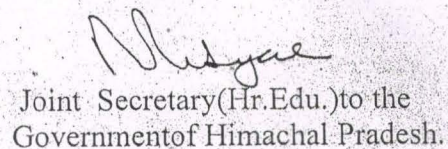 Joint Secretary(Hr.Edu.)to the
Governmentof Himachal Pradesh.